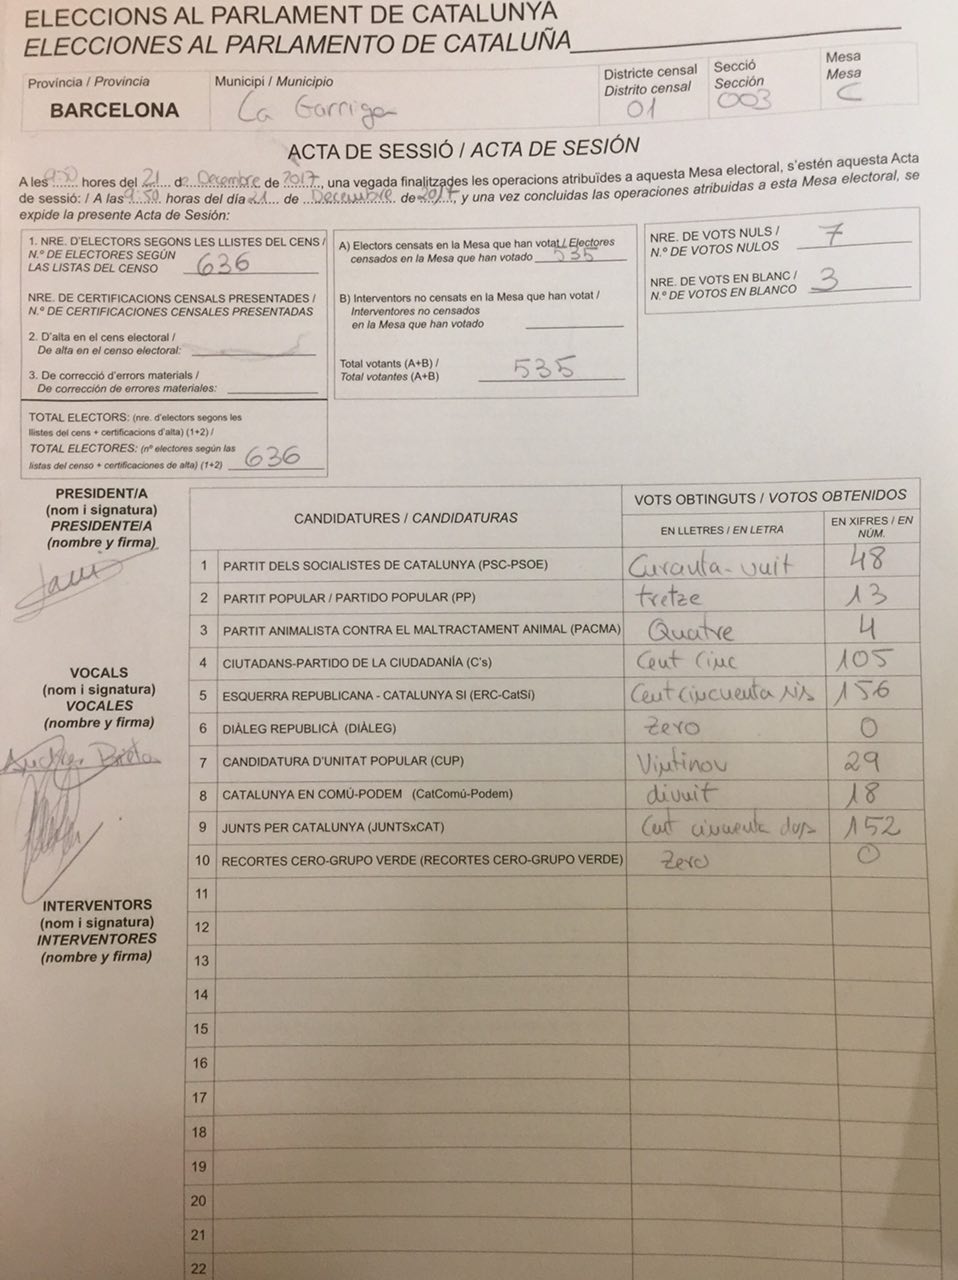 ELECCIONS AL PARLAMENT DE CATALUNYA
ELECCIONES AL PARLAMENTO DE CATALUÑA
Provincia / Provincia
BARCELONA
Municipi / Municipio
La Garriga
Districte censal
Distrito censal
01
Secció
Sección
003
Mesa
Mesa
C
ACTA DE SESSIÓ / ACTA DE SESIÓN
A les 9:50 hores del 21 de Decembre de 2017, una vegada finalitzades les operacions atribuïdes a aquesta Mesa electoral, s'estén aquesta Acta
de sessió: / A las 9:50 horas del día 21 de Decembre de 2017, y una vez concluidas las operaciones atribuidas a esta Mesa electoral, se
expide la presente Acta de Sesión:
1. NRE. D'ELECTORS SEGONS LES LLISTES DEL CENS /
N.º DE ELECTORES SEGÚN
LAS LISTAS DEL CENSO 636
NRE. DE CERTIFICACIONS CENSALS PRESENTADES /
N.º DE CERTIFICACIONES CENSALES PRESENTADAS
2. D'alta en el cens electoral /
De alta en el censo electoral:
3. De correcció d'errors materials /
De corrección de errores materiales:
TOTAL ELECTORS: (nre. d'electors segons les
llistes del cens + certificacions d'alta) (1+2) /
TOTAL ELECTORES: (nº electores según las
listas del censo + certificaciones de alta) (1+2) 636
A) Electors censats en la Mesa que han votat / Electores
censados en la Mesa que han votado 535
B) Interventors no censats en la Mesa que han votat /
Interventores no censados
en la Mesa que han votado
Total votants (A+B) /
Total votantes (A+B) 535
NRE. DE VOTS NULS /
N.º DE VOTOS NULOS 7
NRE. DE VOTS EN BLANC /
N.º DE VOTOS EN BLANCO 3
PRESIDENT/A
(nom i signatura)
PRESIDENTE/A
(nombre y firma)
VOCALS
(nom i signatura)
VOCALES
(nombre y firma)
INTERVENTORS
(nom i signatura)
INTERVENTORES
(nombre y firma)
CANDIDATURES / CANDIDATURAS
VOTS OBTINGUTS / VOTOS OBTENIDOS
EN LLETRES / EN LETRA
EN XIFRES / EN
NÚM.
1 PARTIT DELS SOCIALISTES DE CATALUNYA (PSC-PSOE) Curauta-vuit 48
2 PARTIT POPULAR / PARTIDO POPULAR (PP) tretze 13
3 PARTIT ANIMALISTA CONTRA EL MALTRACTAMENT ANIMAL (PACMA) Quatre 4
4 CIUTADANS-PARTIDO DE LA CIUDADANÍA (C's) Cent Cinc 105
5 ESQUERRA REPUBLICANA - CATALUNYA SI (ERC-CatSí) Cent cincuenta sis 156
6 DIÀLEG REPUBLICÀ (DIÀLEG) Zero 0
7 CANDIDATURA D'UNITAT POPULAR (CUP) Vintinou 29
8 CATALUNYA EN COMÚ-PODEM (CatComú-Podem) divuit 18
9 JUNTS PER CATALUNYA (JUNTSxCAT) Cent cinuenta dos 152
10 RECORTES CERO-GRUPO VERDE (RECORTES CERO-GRUPO VERDE) Zero 0
11
12
13
14
15
16
17
18
19
20
21
22